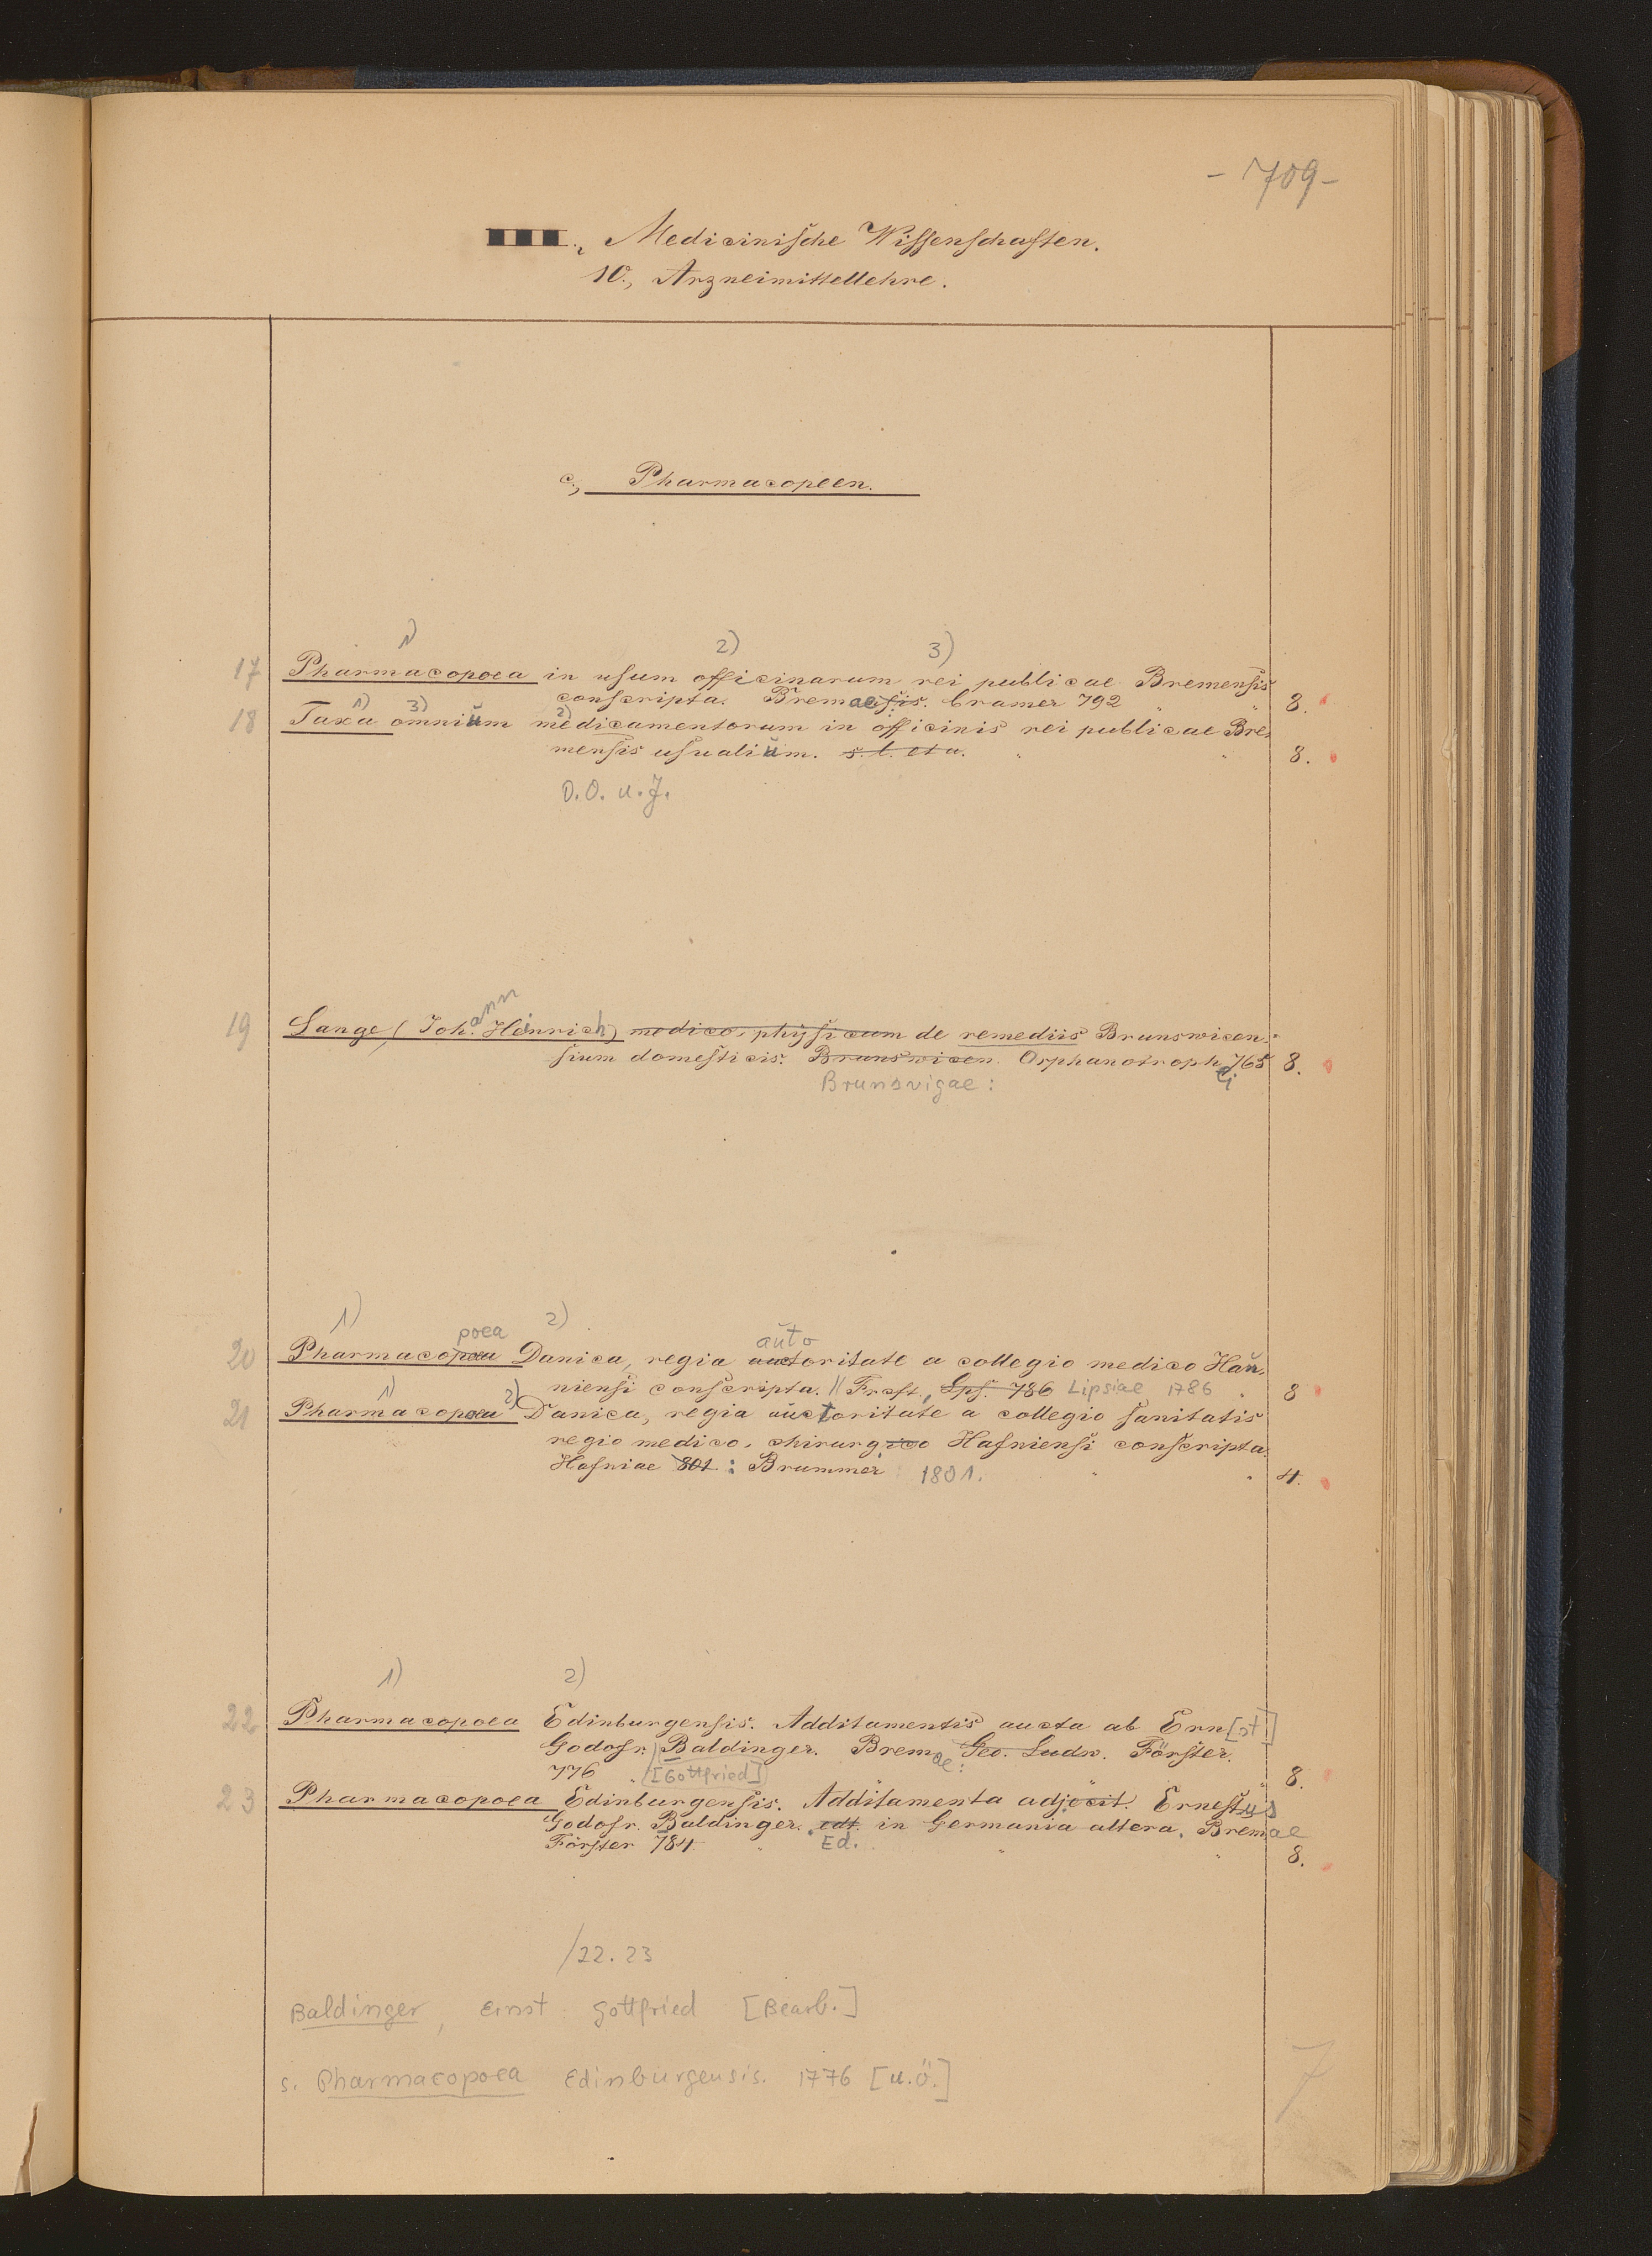 - 709 -
Medicinische Wissenschaften.
10., Arzneimittellehre.
c., Pharmacopeen.
1) 2) 3)
17 Pharmacopoea in usum officinarum rei publicae Bremensis
conscripta. Bremaesis. Cramer 792 " " 8.
1) 3) 2)
18 Taxa omniŭm medicamentorum in officinis rei publicae Bre,
mensis usualiŭm. s. l. et a. " " 8.
O.O. u. J.
ann
19 Lange, (Joh. Heinrich) medico, physicum de remediis Brunswicen,
sium domesticis. Brunswicen. Orphanotroph. 765 8.
Brunsvigae: ei
1) 2)
poea auto
20 Pharmacopoea Danica, regia auctoritate a collegio medico Haŭ,
niensi conscripta. // Frcft., Lps. 786 Lipsiae 1786 " 8
1) 2)
21 Pharmacopoea Danica, regia auctoritate a collegio sanitatis
regio medico, chirurgico Hafniensi conscripta.
Hafniae 801 : Brummer 1801. " " 4.
1) 2)
22 Pharmacopoea Edinburgensis. Additamentis aucta ab Ern[st]
Godofr. Baldinger. Bremae: Geo. Ludw. Förster.
776 " [Gottfried] " 8.
23 Pharmacopoea Edinburgensis. Additamenta adjecit. Ernestus
Godofr. Baldinger. edt. in Germania altera. Bremae
Förster 784 " Ed. " " 8.
/22. 23
Baldinger, Ernst Gottfried [Bearb.]
s. Pharmacopoea Edinburgensis. 1776 [u.ö.]
7